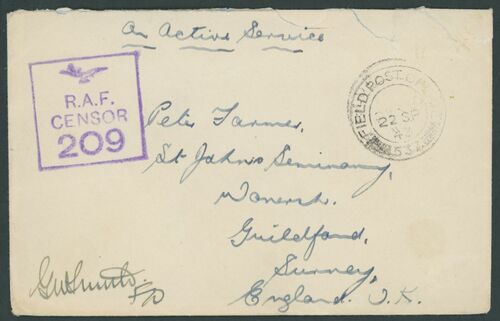 On Active Service
R.A.F.
CENSOR
209
FIELD POST OFFICE
22 SP
43
532
Peter Farmer,
St Johns Seminary,
Wonersh.
Guildford,
Surrey,
England. U.K.